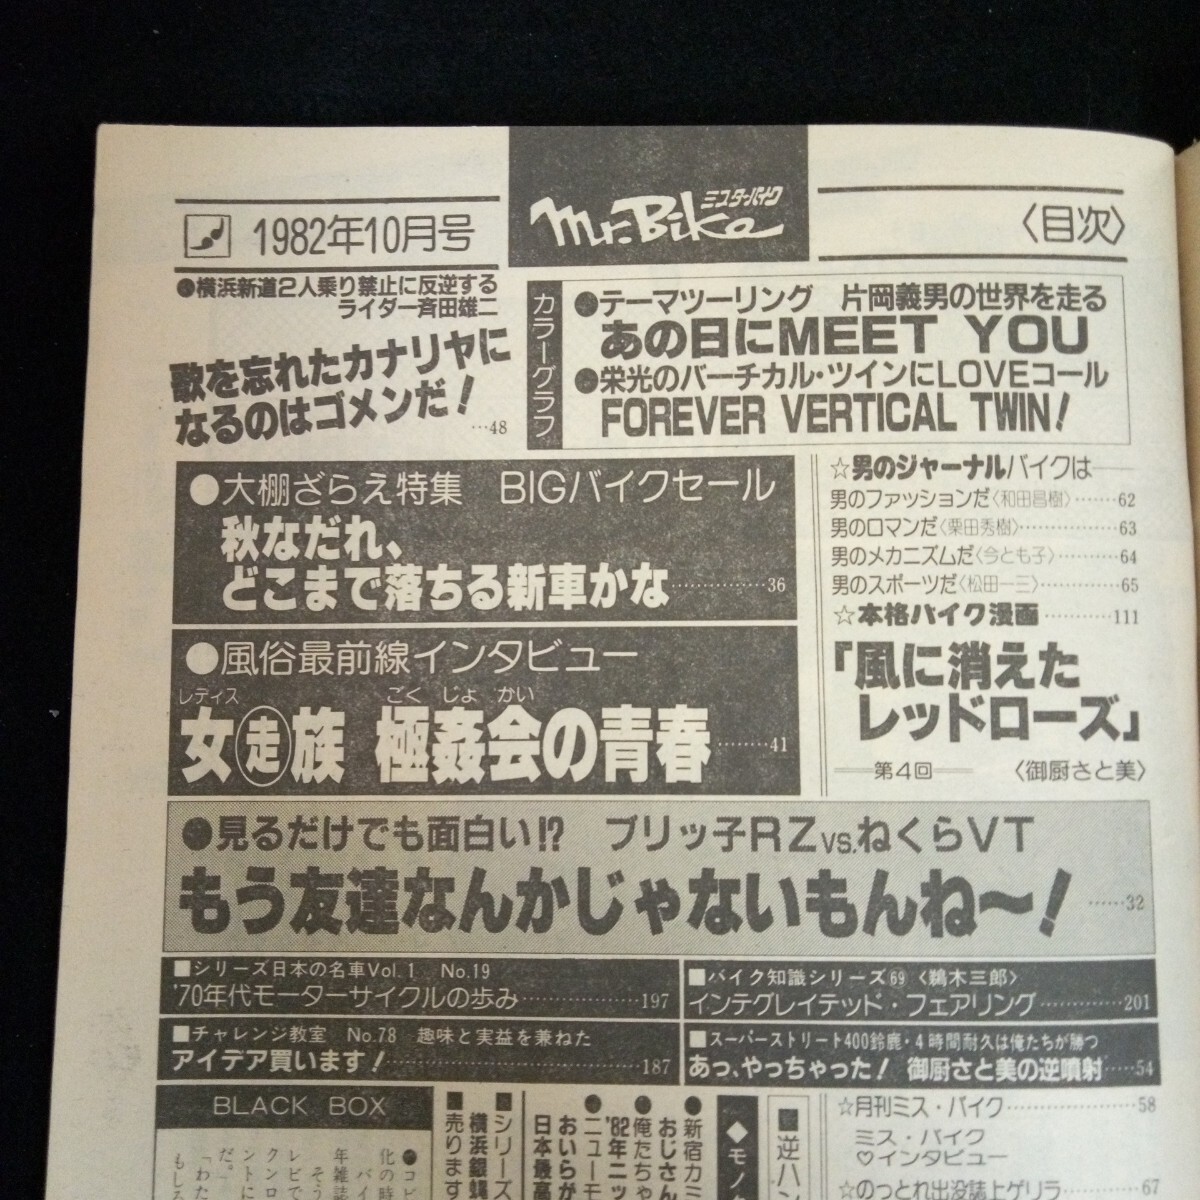 Mr.Bike
ミスターバイク
1982年10月号
〈目次〉
●横浜新道2人乗り禁止に反逆する
ライダー斉田雄二
歌を忘れたカナリヤに
なるのはゴメンだ！
…48
カラーグラフ
●テーマツーリング 片岡義男の世界を走る
あの日にMEET YOU
●栄光のバーチカル・ツインにLOVEコール
FOREVER VERTICAL TWIN!
●大棚ざらえ特集 BIGバイクセール
秋なだれ、
どこまで落ちる新車かな…………36
☆男のジャーナルバイクは――
男のファッションだ〈和田昌樹〉……62
男のロマンだ〈栗田秀樹〉……………63
男のメカニズムだ〈今とも子〉………64
男のスポーツだ〈松田一三〉…………65
☆本格バイク漫画…………111
「風に消えた
レッドローズ」
―第4回― 〈御厨さと美〉
●風俗最前線インタビュー
レディス ごく じょ かい
女走族 極姦会の青春………41
●見るだけでも面白い!? ブリッ子RZvs.ねくらVT
もう友達なんかじゃないもんね〜！……32
■シリーズ日本の名車Vol.1 No.19
'70年代モーターサイクルの歩み……………197
■バイク知識シリーズ69 〈鵜木三郎〉
インテグレイテッド・フェアリング…………201
■チャレンジ教室 No.78 趣味と実益を兼ねた
アイデア買います！…………………187
■スーパーストリート400鈴鹿・4時間耐久は俺たちが勝つ
あっ、やっちゃった！ 御厨さと美の逆噴射……54
BLACK BOX
■シリーズ
横浜銀蝿
■売ります
●新宿カミ
おじさん
●俺たちゃ
'82年ニッ
●ニューモ
おいらが
日本最高
◆モノ
■逆ハン
☆月刊ミス・バイク………………58
ミス・バイク
♡インタビュー
☆のっとれ出没誌上ゲリラ………67